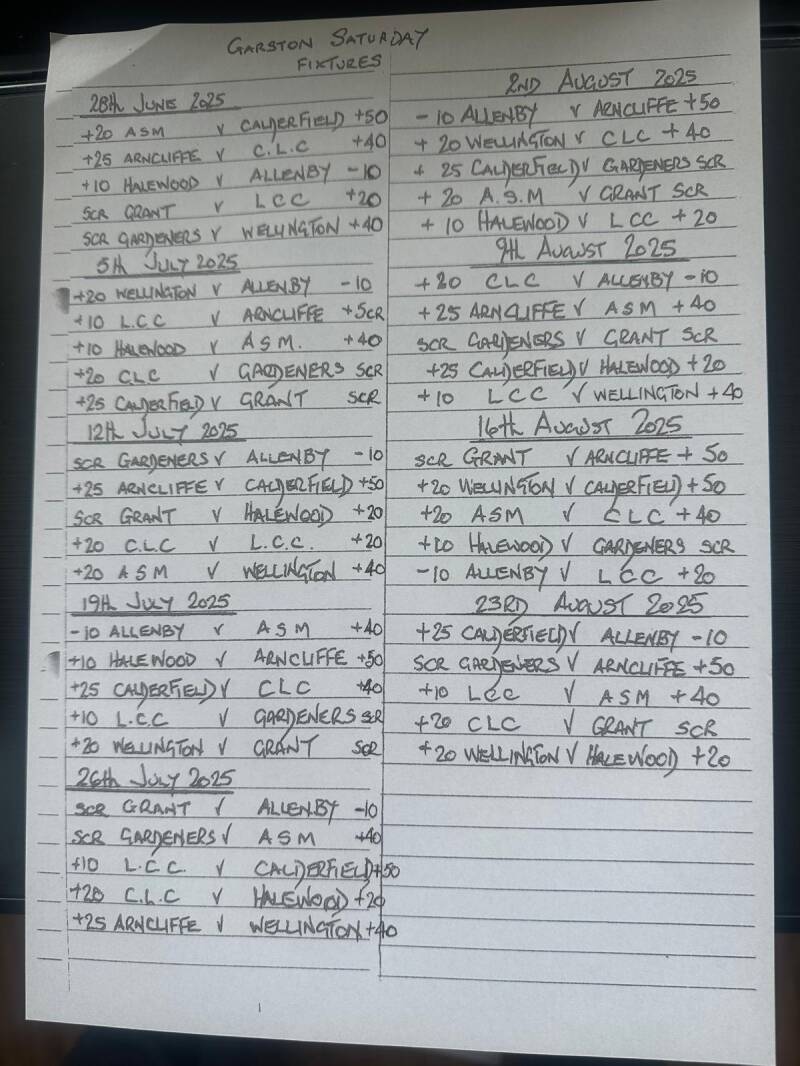 GARSTON SATURDAY
FIXTURES
28th JUNE 2025
+20 ASM V CALDERFIELD +50
+25 ARNCLIFFE V C.L.C +40
+10 HALEWOOD V ALLENBY -10
SCR GRANT V LCC +20
SCR GARDENERS V WELLINGTON +40
5th JULY 2025
+20 WELLINGTON V ALLENBY -10
+10 L.C.C V ARNCLIFFE +5CR
+10 HALEWOOD V ASM. +40
+20 CLC V GARDENERS SCR
+25 CALDERFIELD V GRANT SCR
12th JULY 2025
SCR GARDENERS V ALLENBY -10
+25 ARNCLIFFE V CALDERFIELD +50
SCR GRANT V HALEWOOD +20
+20 C.L.C V L.C.C. +20
+20 ASM V WELLINGTON +40
19th JULY 2025
-10 ALLENBY V ASM +40
+10 HALEWOOD V ARNCLIFFE +50
+25 CALDERFIELD V CLC +40
+10 L.C.C V GARDENERS SCR
+20 WELLINGTON V GRANT SCR
26th JULY 2025
SCR GRANT V ALLENBY -10
SCR GARDENERS V ASM +40
+10 L.C.C. V CALDERFIELD +50
+20 C.L.C V HALEWOOD +20
+25 ARNCLIFFE V WELLINGTON +40
2ND AUGUST 2025
-10 ALLENBY V ARNCLIFFE +50
+20 WELLINGTON V CLC +40
+25 CALDERFIELD V GARDENERS SCR
+20 A.S.M V GRANT SCR
+10 HALEWOOD V LCC +20
9th AUGUST 2025
+20 CLC V ALLENBY -10
+25 ARNCLIFFE V ASM +40
SCR GARDENERS V GRANT SCR
+25 CALDERFIELD V HALEWOOD +20
+10 LCC V WELLINGTON +40
16th AUGUST 2025
SCR GRANT V ARNCLIFFE +50
+20 WELLINGTON V CALDERFIELD +50
+20 ASM V CLC +40
+10 HALEWOOD V GARDENERS SCR
-10 ALLENBY V LCC +20
23RD AUGUST 2025
+25 CALDERFIELD V ALLENBY -10
SCR GARDENERS V ARNCLIFFE +50
+10 LCC V ASM +40
+20 CLC V GRANT SCR
+20 WELLINGTON V HALEWOOD +20